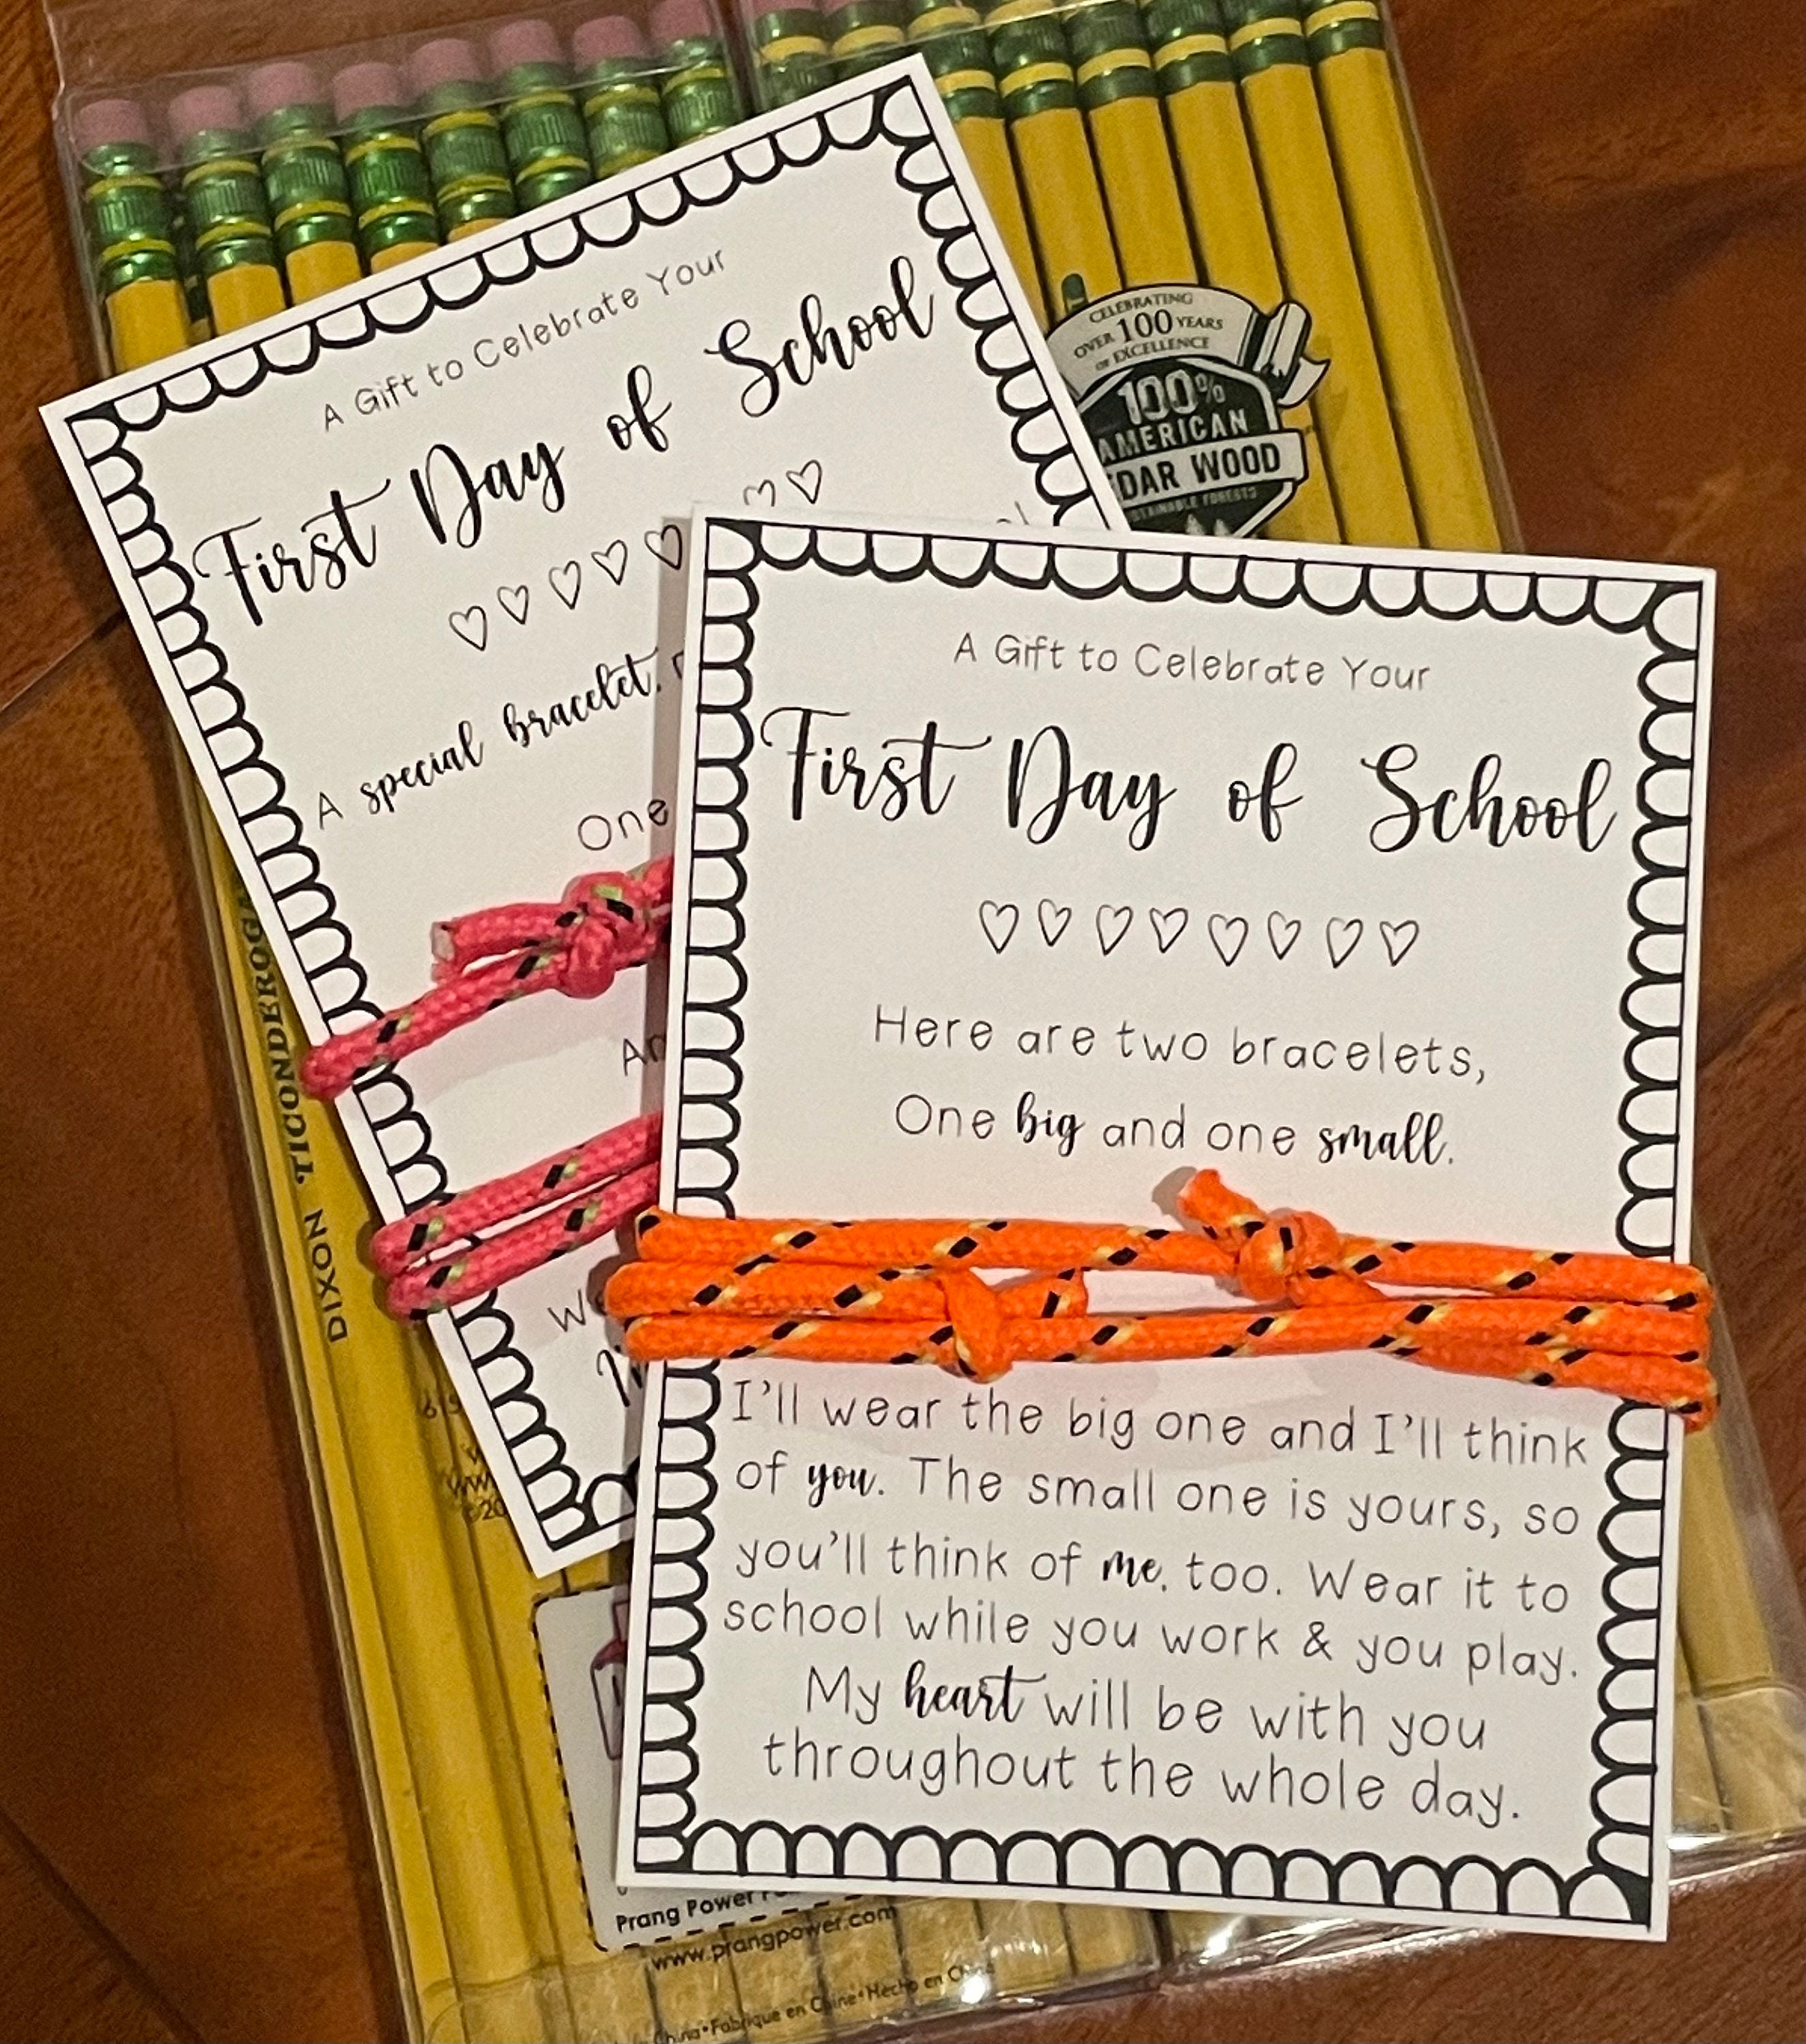 A Gift to Celebrate Your
First Day of School
A special bracelet,
One
W
CELEBRATING
OVER 100 YEARS
OF EXCELLENCE
100%
AMERICAN
DAR WOOD
STAINABLE FORESTS
DIXON TICONDEROGA
A Gift to Celebrate Your
First Day of School
Here are two bracelets,
One big and one small.
I'll wear the big one and I'll think
of you. The small one is yours, so
you'll think of me, too. Wear it to
school while you work & you play.
My heart will be with you
throughout the whole day.
Prang Power
www.prangpower.com
China•Fabrique en Chine•Hecho en China